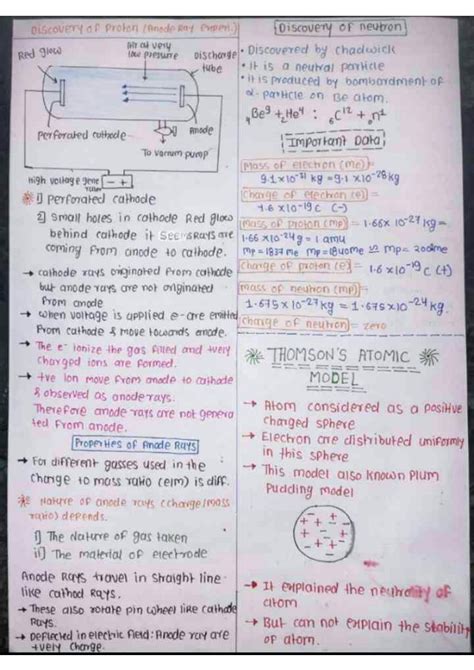 Discovery of Proton (Anode Ray Experi.)
Red glow
Air at very
low pressure
Discharge
tube
Perforated cathode
Anode
To vacuum pump
High voltage gene
- +
1) Perforated cathode
2) Small holes in cathode Red glow
behind cathode it Seems rays are
coming from anode to cathode.
→ cathode rays originated from cathode
but anode rays are not originated
from anode
→ when voltage is applied e- are emitted
from cathode & move towards anode.
→ The e- ionize the gas filled and +very
charged ions are formed.
→ +ve ion move from anode to cathode
& observed as anode rays.
Therefore anode rays are not genera
ted from anode.
Properties of Anode Rays
→ For different gasses used in the
charge to mass ratio (e/m) is diff.
Nature of anode rays (charge/mass
ratio) depends.
i) The Nature of gas taken
ii) The material of electrode
Anode Rays travel in straight line
like cathod Rays.
→ These also rotate pin wheel like cathode
Rays.
→ Deflected in electric field: Anode ray are
+very charge.
Discovery of neutron
• Discovered by chadwick
• It is a neutral particle
• It is produced by bombardment of
α-particle on Be atom.
₄Be⁹ + ₂He⁴ : ₆C¹² + ₀n¹
Important Data
Mass of electron (me) =
9.1×10⁻³¹ kg = 9.1×10⁻²⁸g
Charge of electron (e) =
1.6 × 10⁻¹⁹ C (-)
Mass of proton (mp) = 1.66× 10⁻²⁷kg
1.66 ×10⁻²⁴g = 1 amu
mp = 1837 me mp= 1840me
Charge of proton (e) = 1.6 × 10⁻¹⁹ C (+)
Mass of neutron (mp) =
1.675×10⁻²⁷kg = 1.675×10⁻²⁴kg.
Charge of neutron = zero
THOMSON'S ATOMIC
MODEL
→ Atom considered as a positive
charged sphere
→ Electron are distributed uniformly
in this sphere
→ This model also known Plum
Pudding model
+ - + + - + + - + -
→ It explained the neutrality of
atom
→ But can not explain the stability
of atom.